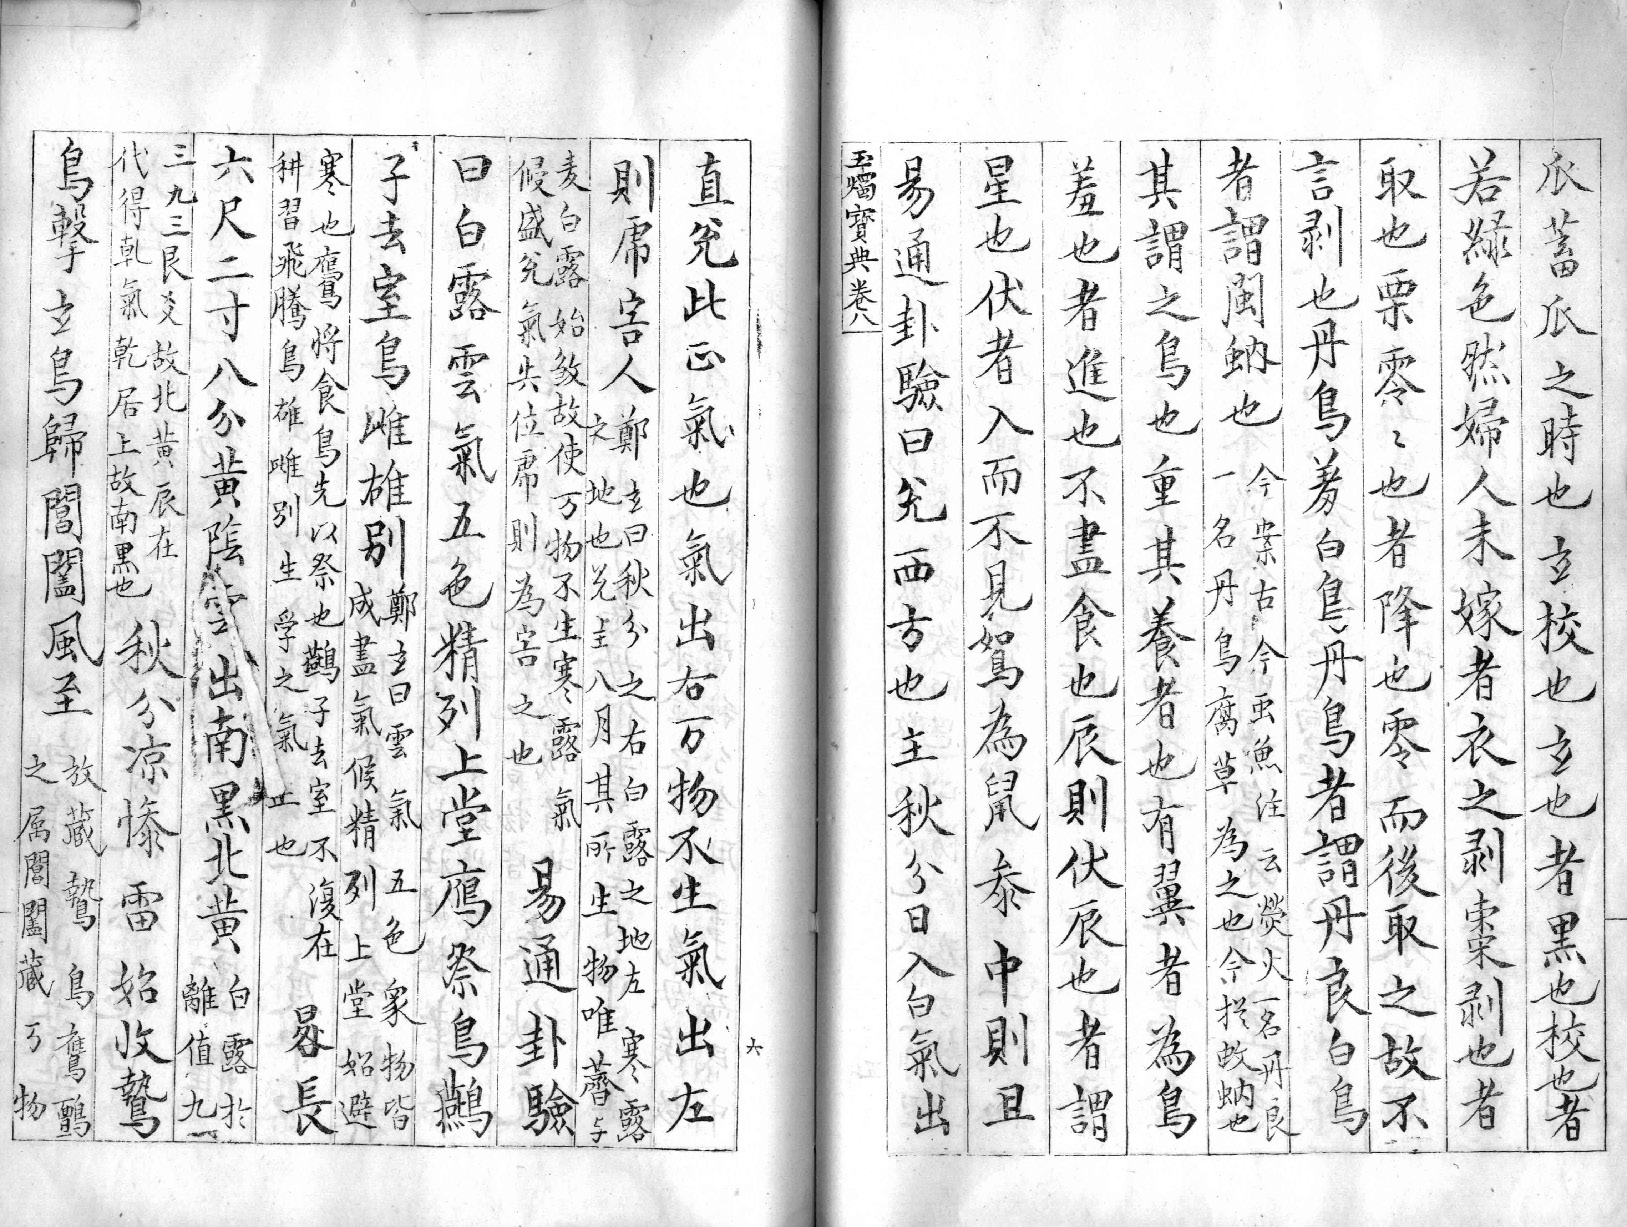 瓜蓄瓜之時也玄校也玄也者黒也校也者
若緑色然婦人未嫁者衣之剥棗剥也者
取也栗零〻也者降也零而後取之故不
言剥也丹鳥羞白鳥丹鳥者謂丹良白鳥
者謂閩蚋也
今案古今虫魚注云熒火一名丹良
一名丹鳥腐草為之也今捴蚊蚋也
其謂之鳥也重其養者也有翼者為鳥
羞也者進也不盡食也辰則伏辰也者謂
星也伏者入而不見鴽為鼠叅中則且
易通卦驗曰兊西方也主秋分日入白氣出
玉燭寶典卷八
六
直兊此正氣也氣出右万物不生氣出左
則虎害人
鄭玄曰秋分之右白露之地左寒露
之地也兊主八月其所生物唯薺与
麦白露始煞故使万物不生寒露氣
候盛兊氣失位虎則為害之也
易通卦驗
曰白露雲氣五色精列上堂鷹祭鳥鷰
子去室鳥雌雄別
鄭玄曰雲氣五色衆物皆
成盡氣候精列上堂始避
寒也鷹將食鳥先以祭也鷰子去室不復在
耕習飛騰鳥雄雌別生孚之氣止也
晷長
六尺二寸八分黄陰雲出南黑北黄
白露於
離值九
三九三艮爻故北黄辰在
代得乾氣乾居上故南黒也
秋分凉惨雷始收鷙
鳥擊玄鳥歸閶闔風至
放藏鷙鳥鷹鸇
之属閶闔藏万物